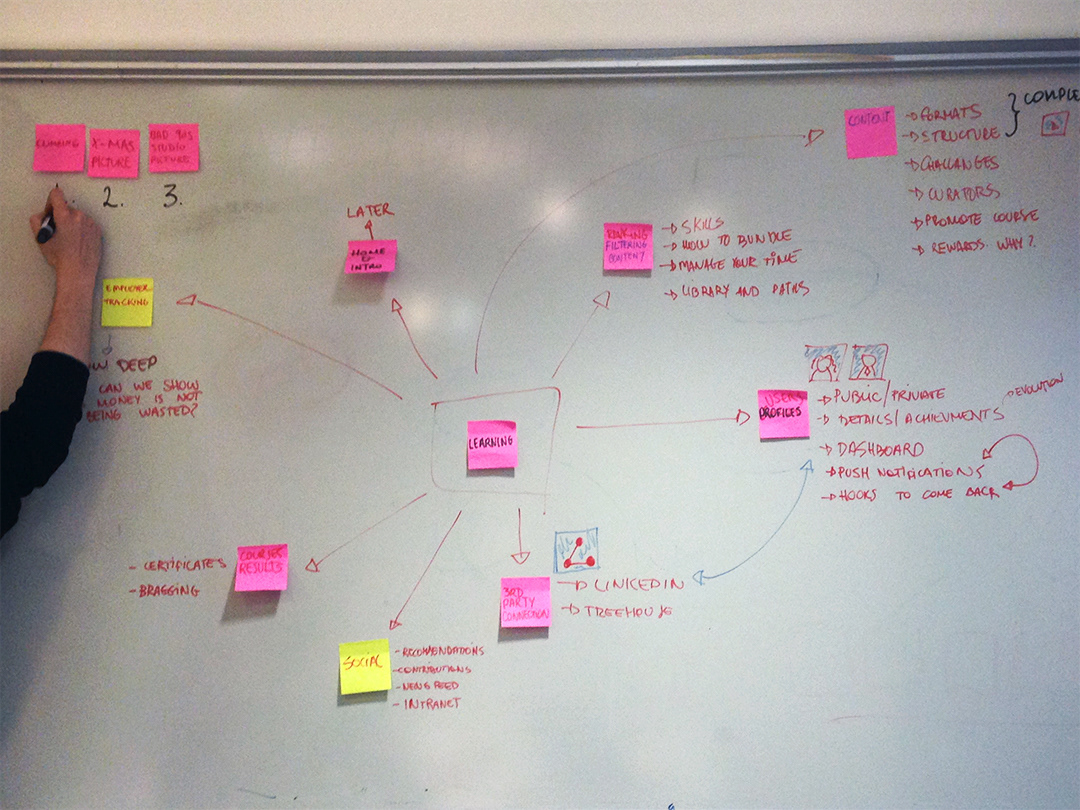 CLIMBING
X-MAS
PICTURE
BAD 90s
STUDIO
PICTURE
1.
2.
3.
CONTENT
FORMATS
STRUCTURE
CHALLANGES
CURATORS
PROMOTE COURSE
REWARDS. WHY?
LATER
HOME
&
INTRO
FILTERING
CONTENT?
SKILLS
HOW TO BUNDLE
MANAGE YOUR TIME
LIBRARY AND PATHS
EMPLOYER
TRACKING
DEEP
CAN WE SHOW
MONEY IS NOT
BEING WASTED?
LEARNING
USERS
PROFILES
PUBLIC/PRIVATE
DETAILS/ACHIEVMENTS
EVOLUTION
DASHBOARD
PUSH NOTIFICATIONS
HOOKS TO COME BACK
COURSES
RESULTS
- CERTIFICATES
- BRAGGING
3RD
PARTY
CONNECTION
LINKEDIN
TREEHOUSE
SOCIAL
- RECOMENDATIONS
- CONTRIBUTIONS
- NEWS FEED
- INTRANET